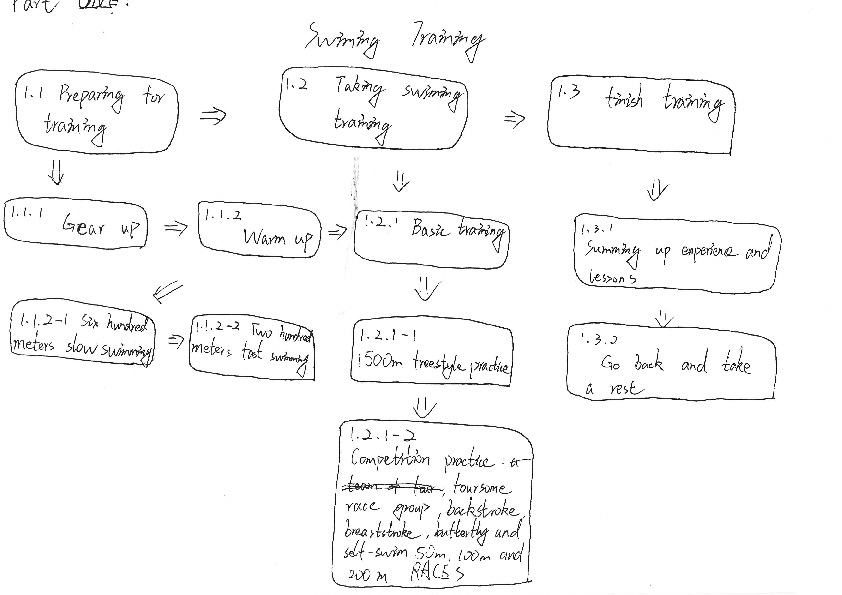 Part one:
Swiming Training
1.1 Preparing for
training
1.2 Taking swimming
training
1.3 finish training
1.1.1 Gear up
1.1.2
Warm up
1.2.1 Basic training
1.3.1
Summing up experience and
lessons
1.1.2-1 Six hundred
meters slow swimming
1.1.2-2 Two hundred
meters fast swimming
1.2.1-1
1500m freestyle practice
1.3.2
Go back and take
a rest
1.2.1-2
Competition practice.
team of four, foursome
race group, backstroke,
breaststroke, butterfly and
self-swim 50m, 100m and
200m RACES